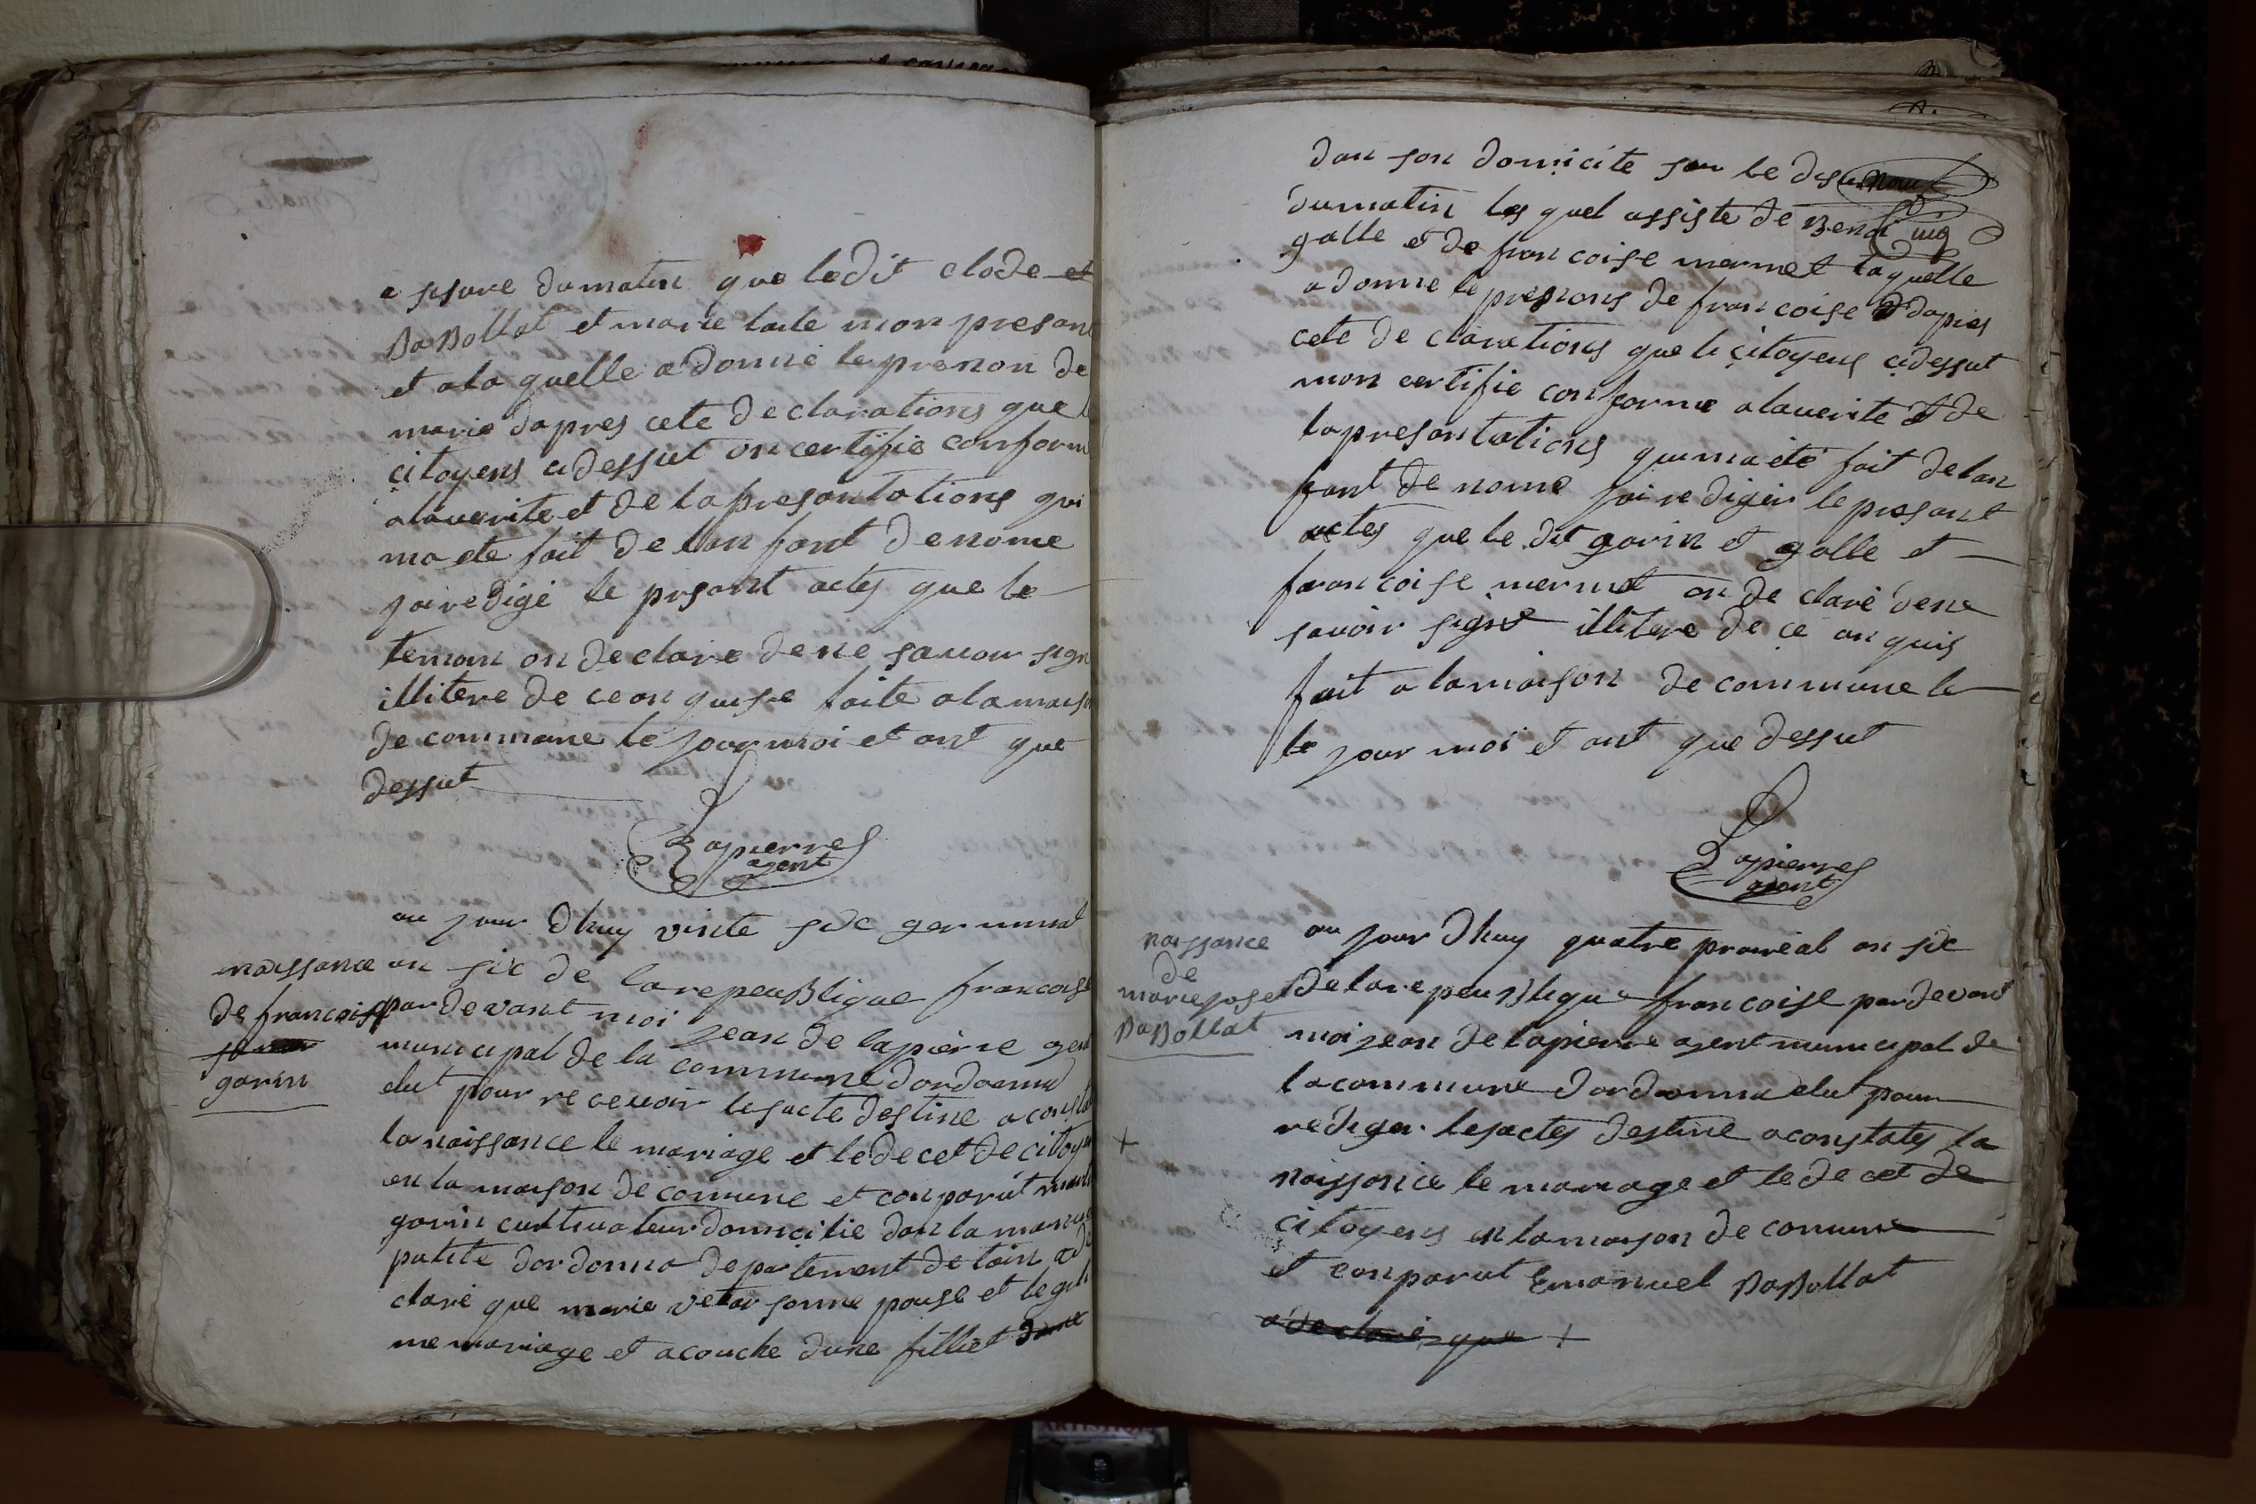 a sisure du matin que le dit clode et
BaBollat et marie tarle mon presan
et a la quelle a donné le prenon de
marie dapres cete declarations que
citoyens cidessut on certifie conform
alaverite et de la presantations qui
ma ete fait de lan fant de nome
jai redigé le prsant actes que le
temoin on declare de ne savoir sign
illitere de ce on quise faite a la maiso
de commune le jour moi et ant que
dessut
Lapierres
agent
au jour dhuy vinte six germinat
naissance
de francoise
garin
an six de la repeuBlique francoise
par devant moi jean de lapierre agen
municipal de la commune dordonna
elut pour recevoir les acte destine a consta
la naissance le mariage et le decet de citoy
en la maison de comune et conparut
garin cultivateur domicilie dan la
dordonna departement de lain a de
claré que marie sonne pouse et
me mariage et acouche dune filliet dune
dan son domicite sur le nouf
du matin les quel assiste de cinq
galle et de francoise mermet laquelle
a donne le prenons de francoise dapres
cete de clarations que le citoyens cidessut
mon certifie conforme alaverite et de
la presantations qui ma eté fait de lan
fant de nome jai rediger le prosant
actes que le dit garin et galle et
francoise mermet on de claré de ne
savoir signe illitere de ce on quis
fait a la maison de commune le
le jour moi et ant que dessut
Lapierres
agent
naissance
de
marie joset
BaBollat
au jour dhuy quatre prareal an six
de la re peuBlique francoise par devant
moi jean de lapierre agent municipal de
la commune dordonna elut pour
rediger les actes destine a constates la
naissance le mariage et le de cet de
citoyens en la maison de comune
et conparut Emanuel BaBollat
a declaré que +